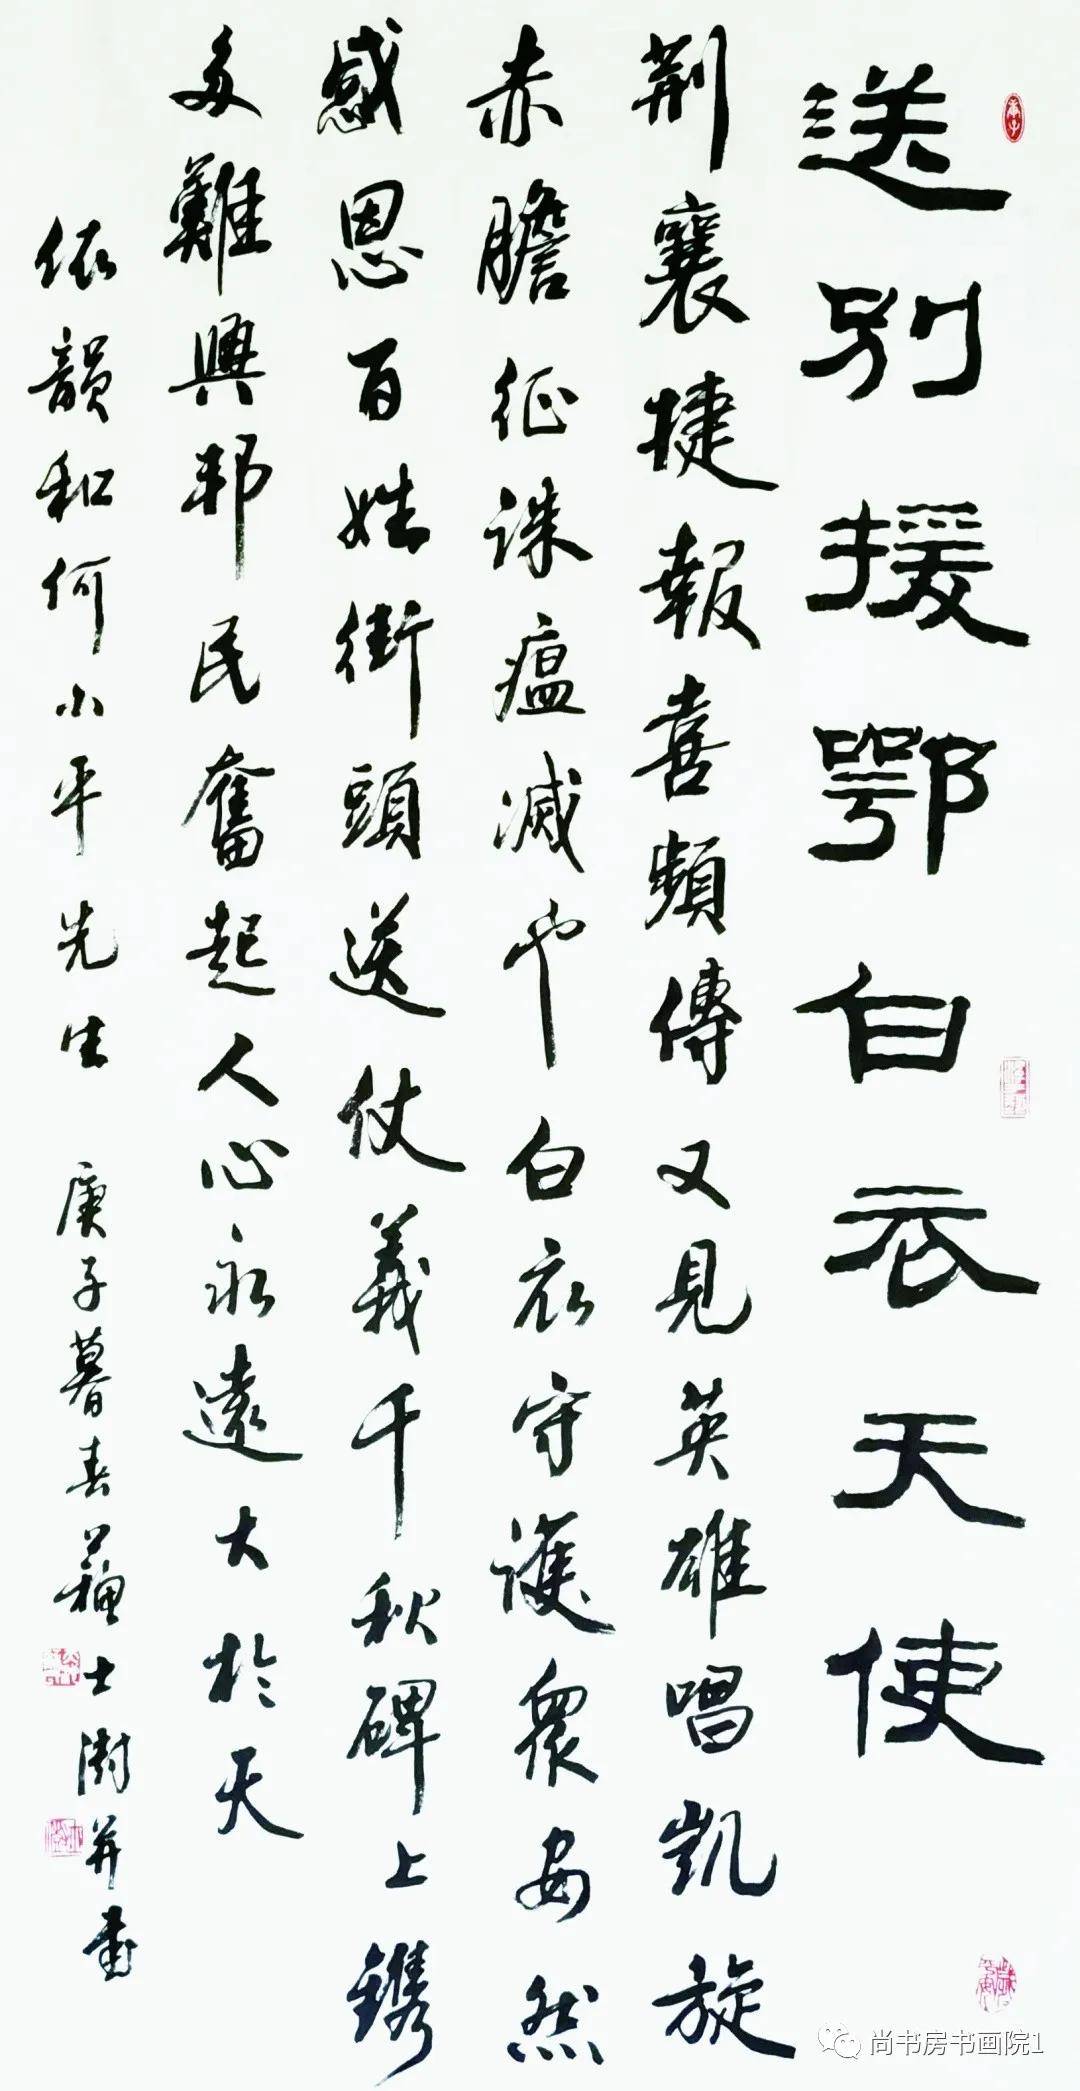 送别援鄂白衣天使
荆襄捷報喜頻傳又見英雄唱凱旋
赤膽征誅瘟滅也白衣守護眾安然
感恩百姓街頭送仗義千秋碑上鐫
多難興邦民奮起人心永遠大於天
依韻和何小平先生 庚子暮春蘇士澍并書
庚子
尚书房书画院1